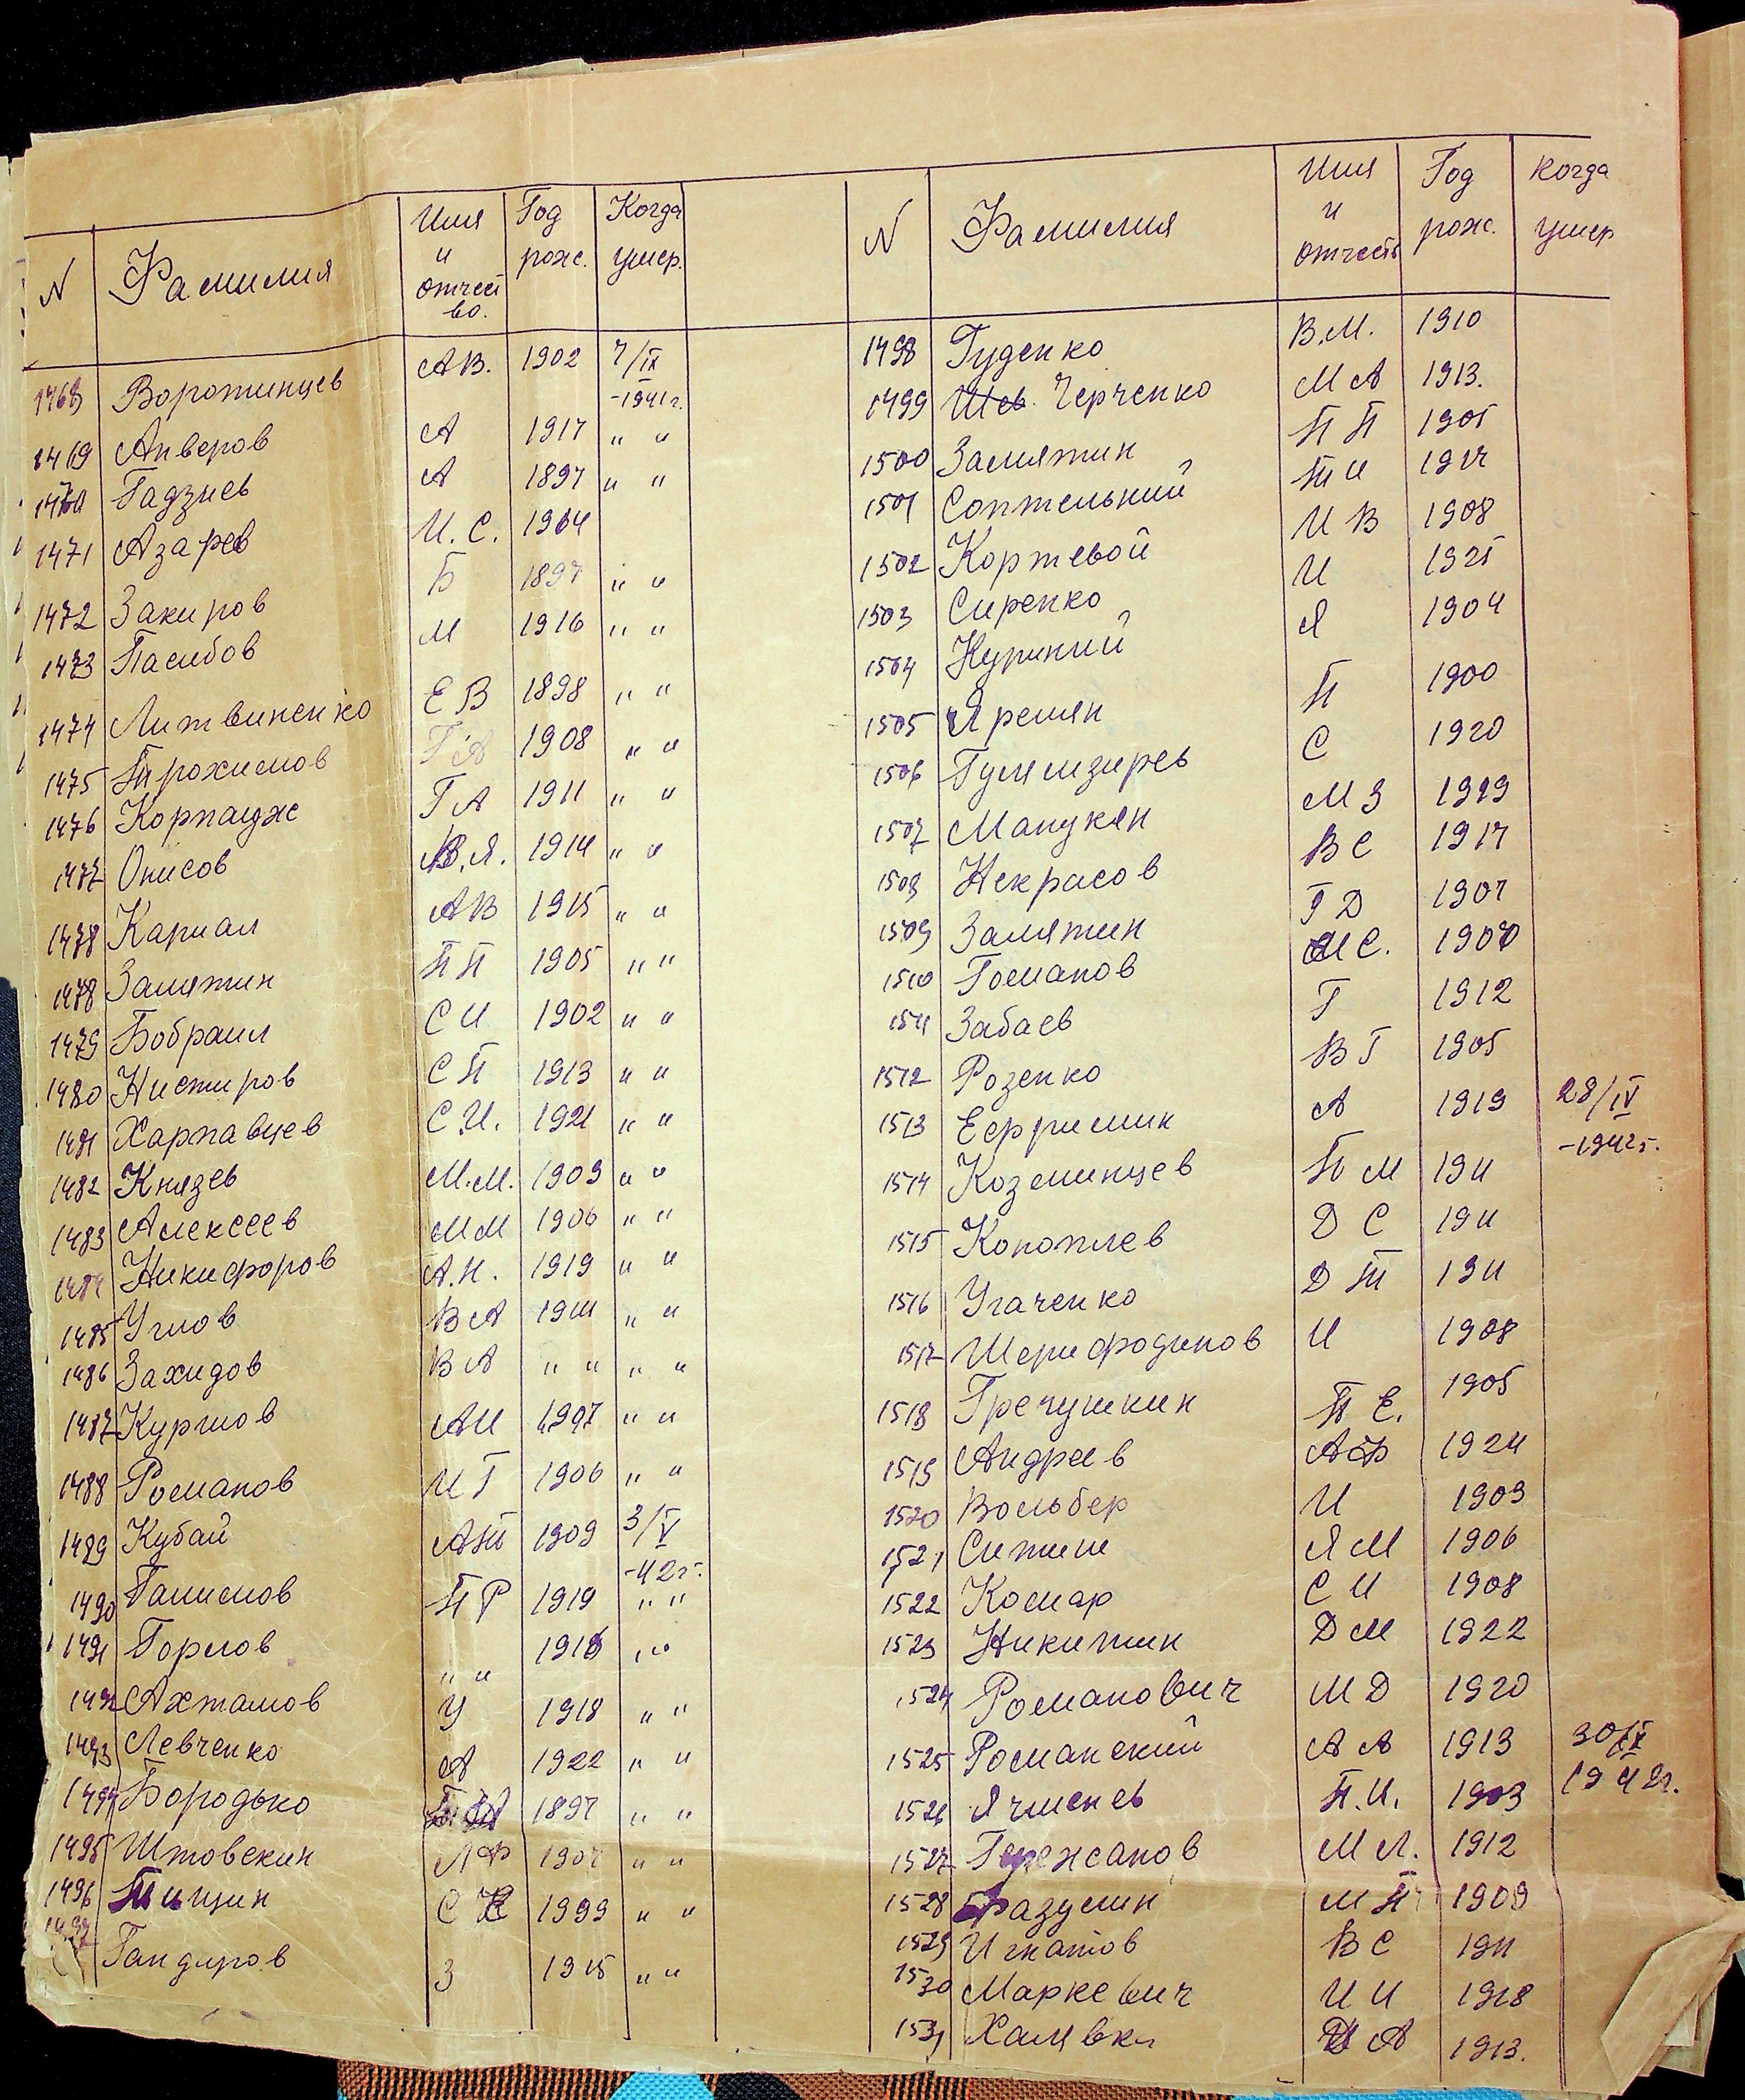 N Фамилия Имя и отчество. Год рож. Когда умер.
1468 Воротинцев А В. 1902 7/IX -1941г.
1469 Анверов А 1917 " "
1470 Гадзиев А 1897 " "
1471 Азарев И. С. 1904
1472 Закиров Б 1897 " "
1473 Пасибов М 1916 " "
1474 Литвиненко Е В 1898 " "
1475 Трохимов Г А 1908 " "
1476 Корпаидже Г А 1911 " "
1477 Онисов В. Я. 1914 " "
1478 Кариал А В 1915 " "
1478 Замятин П П 1905 " "
1479 Бобраил С И 1902 " "
1480 Нистиров С П 1913 " "
1481 Харпавцев С. И. 1921 " "
1482 Князев М. М. 1909 " "
1483 Алексеев М М 1906 " "
1484 Никифоров А. Н. 1919 " "
1485 Углов В А 1911 " "
1486 Захидов В А " " " "
1487 Курилов А И 1907 " "
1488 Романов И Г 1906 " "
1489 Кубай А Т 1909 3/V -42г.
1490 Галимов П Р 1919 " "
1491 Горлов " " 1918 " "
1492 Ахтамов У 1918 " "
1493 Левченко А 1922 " "
1494 Бородько 1897 " "
1495 Штовскин Л Ф 1907 " "
1496 Тищин С К 1999 " "
1497 Гандиров З 1915 " "
N Фамилия Имя и отчеств Год рож. когда умер
1498 Гуденко В. М. 1910
1499 Черченко М А 1913.
1500 Замятин П П 1905
1501 Соптельний Т И 1917
1502 Кортевой И В 1908
1503 Сиренко И 1925
1504 Куриний Я 1904
1505 Яремян П 1900
1506 Гумизирев С 1920
1507 Манукян М З 1919
1508 Некрасов В С 1917
1509 Замятин Г Д 1907
1510 Гоманов М С. 1907
1511 Забаев Г 1912
1512 Розенко В Г 1905
1513 Еффимин А 1919 28/IV -1942г.
1514 Козминцев П М 1911
1515 Коноплев Д С 1911
1516 Угаченко Д Т 1911
1517 Шерифодинов И 1908
1518 Гречушкин П Е. 1905
1519 Андреев А Ф 1924
1520 Вольбер И 1909
1521 Ситин Я М 1906
1522 Комар С И 1908
1523 Никитин Д М 1922
1524 Романович М Д 1920
1525 Романский А А 1913 30/IV 1942г.
1526 Ячменев П. И. 1903
1527 Гережсанов М Л. 1912
1528 Фразумин М П 1909
1529 Игнатов В С 1911
1530 Маркевич И И 1918
1531 Халявка А 1913.